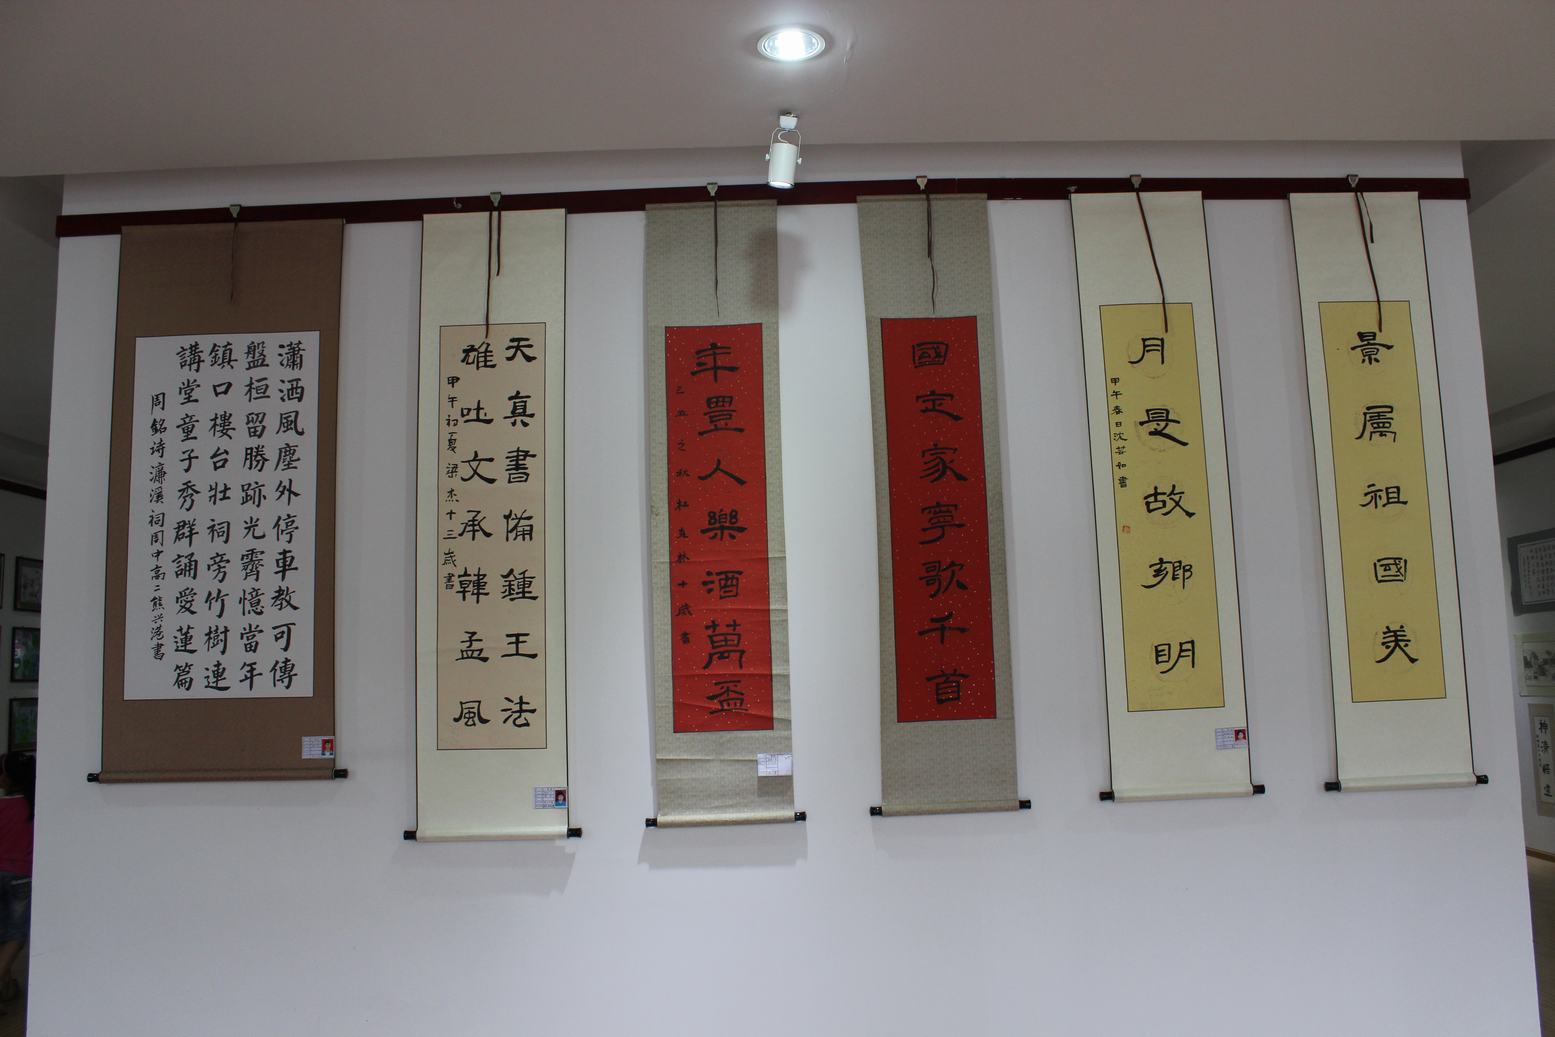 景屬祖國美
月是故鄉明
甲午春日沈若和書
國定家寧歌千首
年豐人樂酒萬盃
己丑之秋杜真林十歲書
天真書備鍾王法
雄吐文承韓孟風
甲午初夏梁杰十三歲書
瀟洒風塵外停車教可傳
盤桓留勝跡光霽憶當年
鎮口樓台壯祠旁竹樹連
講堂童子秀群誦愛蓮篇
周銘诗濂溪祠周中高二熊兴港書